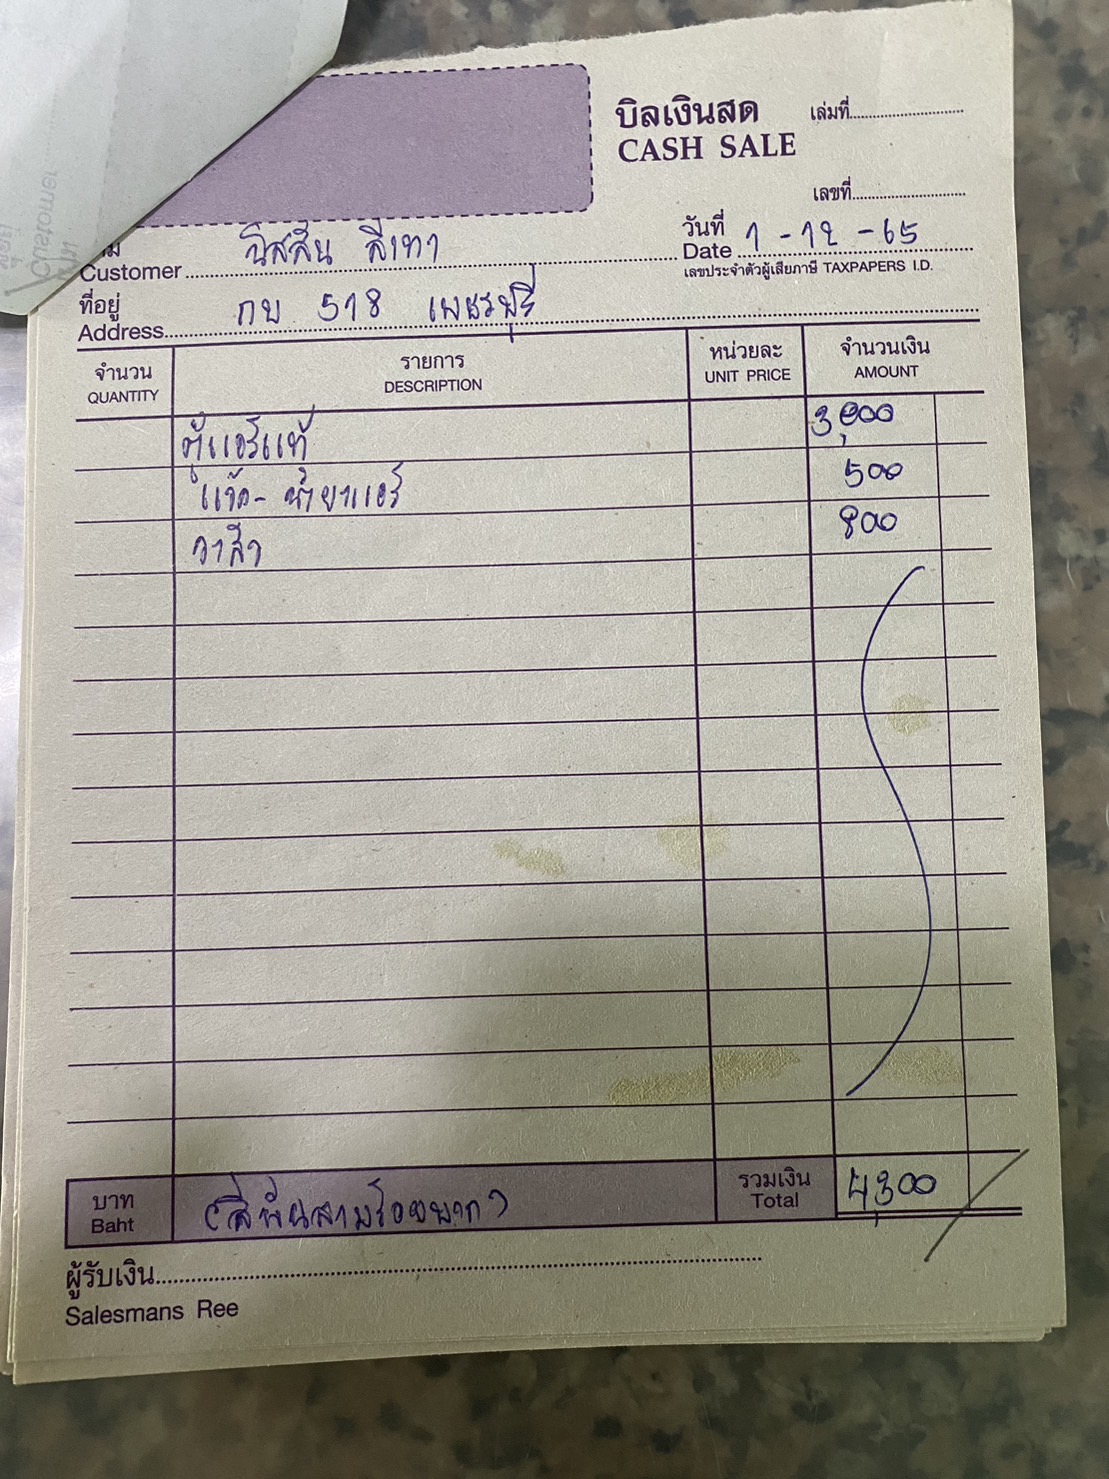 บิลเงินสด เล่มที่
CASH SALE
เลขที่
วันที่
Customer นิสสัน สีเทา Date 1-12-65
เลขประจำตัวผู้เสียภาษี TAXPAPERS I.D.
ที่อยู่
Address กบ 518 เพชรบุรี
จำนวน รายการ หน่วยละ จำนวนเงิน
QUANTITY DESCRIPTION UNIT PRICE AMOUNT
ตู้แอร์แท้ 3,000
น้ำยาแอร์ 500
วาล์ว 800
บาท รวมเงิน
Baht (สี่พันสามร้อยบาท) Total 4,300
ผู้รับเงิน
Salesmans Ree